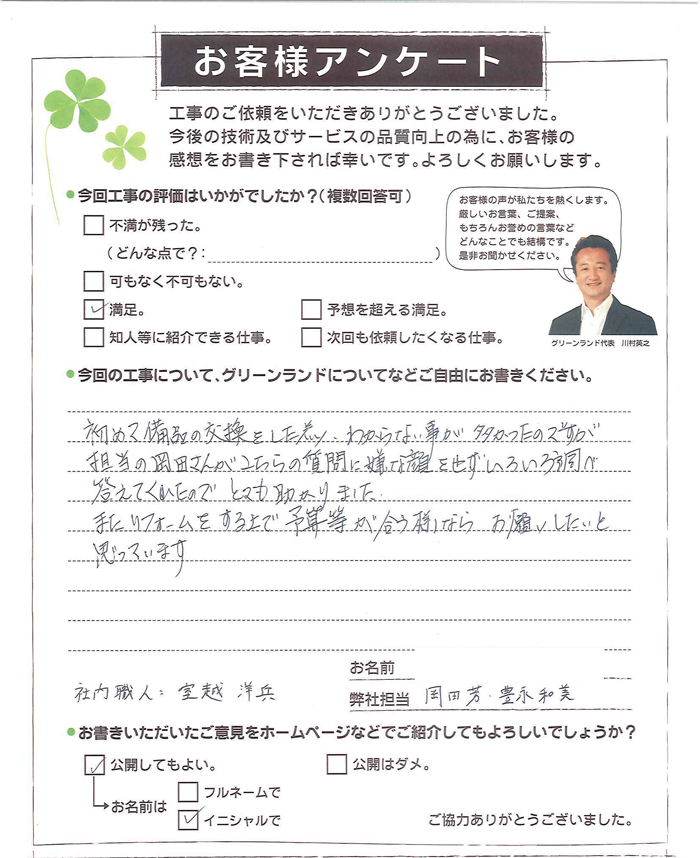 お客様アンケート
工事のご依頼をいただきありがとうございました。
今後の技術及びサービスの品質向上の為に、お客様の
感想をお書き下されば幸いです。よろしくお願いします。
●今回工事の評価はいかがでしたか？（複数回答可）
不満が残った。
（どんな点で？：　　　）
可もなく不可もない。
満足。
予想を超える満足。
知人等に紹介できる仕事。
次回も依頼したくなる仕事。
お客様の声が私たちを熱くします。
厳しいお言葉、ご提案、
もちろんお誉めの言葉など
どんなことでも結構です。
是非お聞かせください。
グリーンランド代表　川村英之
●今回の工事について、グリーンランドについてなどご自由にお書きください。
初めて備品の交換をした為、わからない事が多かったのですが
担当の岡田さんがこちらの質問に嫌な顔をせずいろいろ調べ
答えてくれたのでとても助かりました。
またリフォームをする上で予算等が合う様なら お願いしたいと
思っています
お名前
社内職人：室越 洋兵
弊社担当 岡田芳・豊永和美
●お書きいただいたご意見をホームページなどでご紹介してもよろしいでしょうか？
公開してもよい。
公開はダメ。
お名前は
フルネームで
イニシャルで
ご協力ありがとうございました。